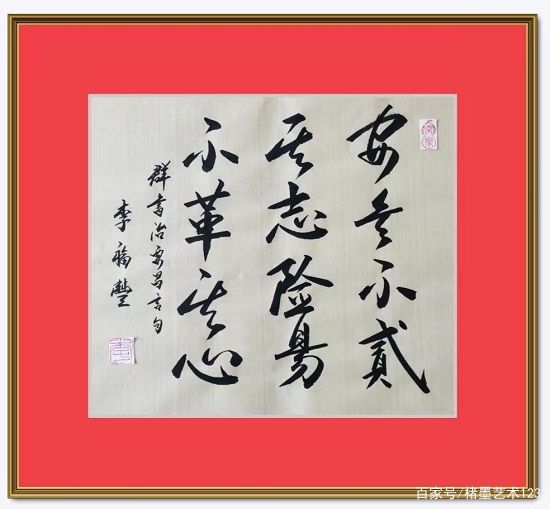 安危不貳
其志险易
不革其心
群書治要昌言句
李福豐
百家号/楮墨艺术123